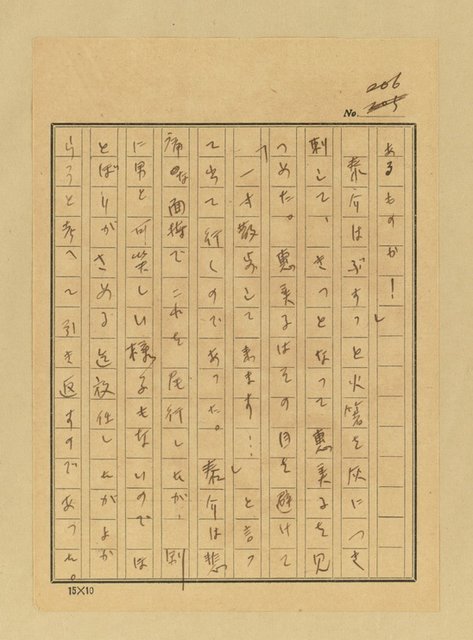 No. 206
205
あるものか！」
泰介はぶすっと火箸を灰につき
刺して、きっとなって惠美子を見
つめた。惠美子はその目を避けて
「一寸散歩して来ます…」と言っ
て出て行くのであった。泰介は悲
痛な面持でこれを尾行したが、別
に男と可笑しい様子もないのでほ
とぼりがさめる迄放任したがよか
らうと考へて引き返すのであった。
15×10